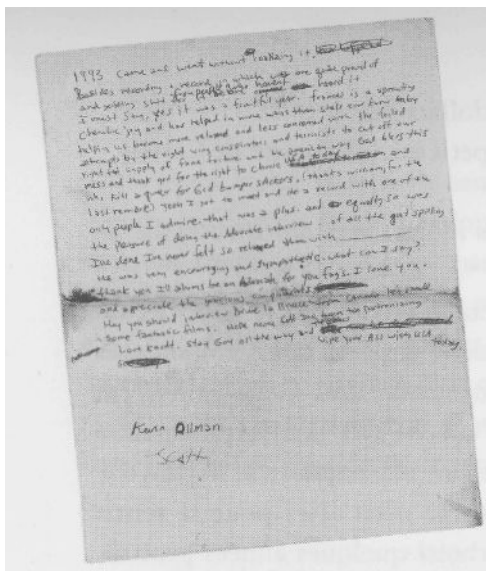 1993 Came and went without it.
Besides recording a record in which we are quite proud of
and people who haven't heard it
I must say, yes it was a fruitful year. frances is a sprouting
cherubic joy and has helped in more ways than she'll ever know by
helping us become more relaxed and less concerned with the failed
attempts by the right wing conspirators and terrorists to cut off our
supply of and God bless this
mess and thank god for the right to choose and
ink, kill a queer for God bumper stickers, for the
last yeah I got to meet and do a record with one of the
only people I admire. that was a plus. and equally so was
the pleasure of doing the Advocate interview. of all the gut spilling
Ive done Ive never felt so relaxed than with
He was very encouraging and Sympathetic. what can I say?
thank you Ill always be an Advocate for you fags. I love you.
and appreciate the compliments
Hey you should interview Bruce La Bruce from Canada hes made
some fantastic films.
Love kurdt. Stay Gay all the way and wipe your Ass with USA today.
Kevin Allman